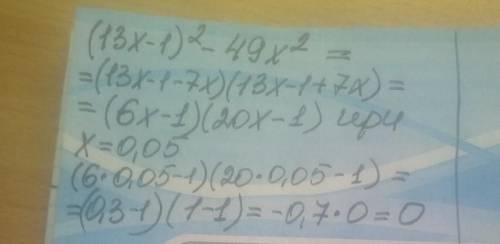 (13x-1)² - 49x² =
=(13x-1-7x)(13x-1+7x)=
=(6x-1)(20x-1) при
x=0,05
(6·0,05-1)(20·0,05-1)=
=(0,3-1)(1-1)=-0,7·0=0